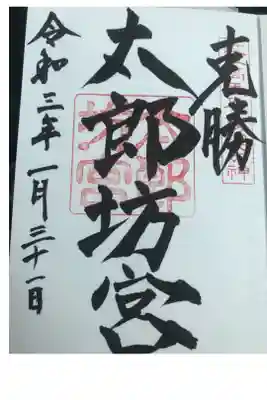 克勝
太郎坊宮
令和三年一月三十一日